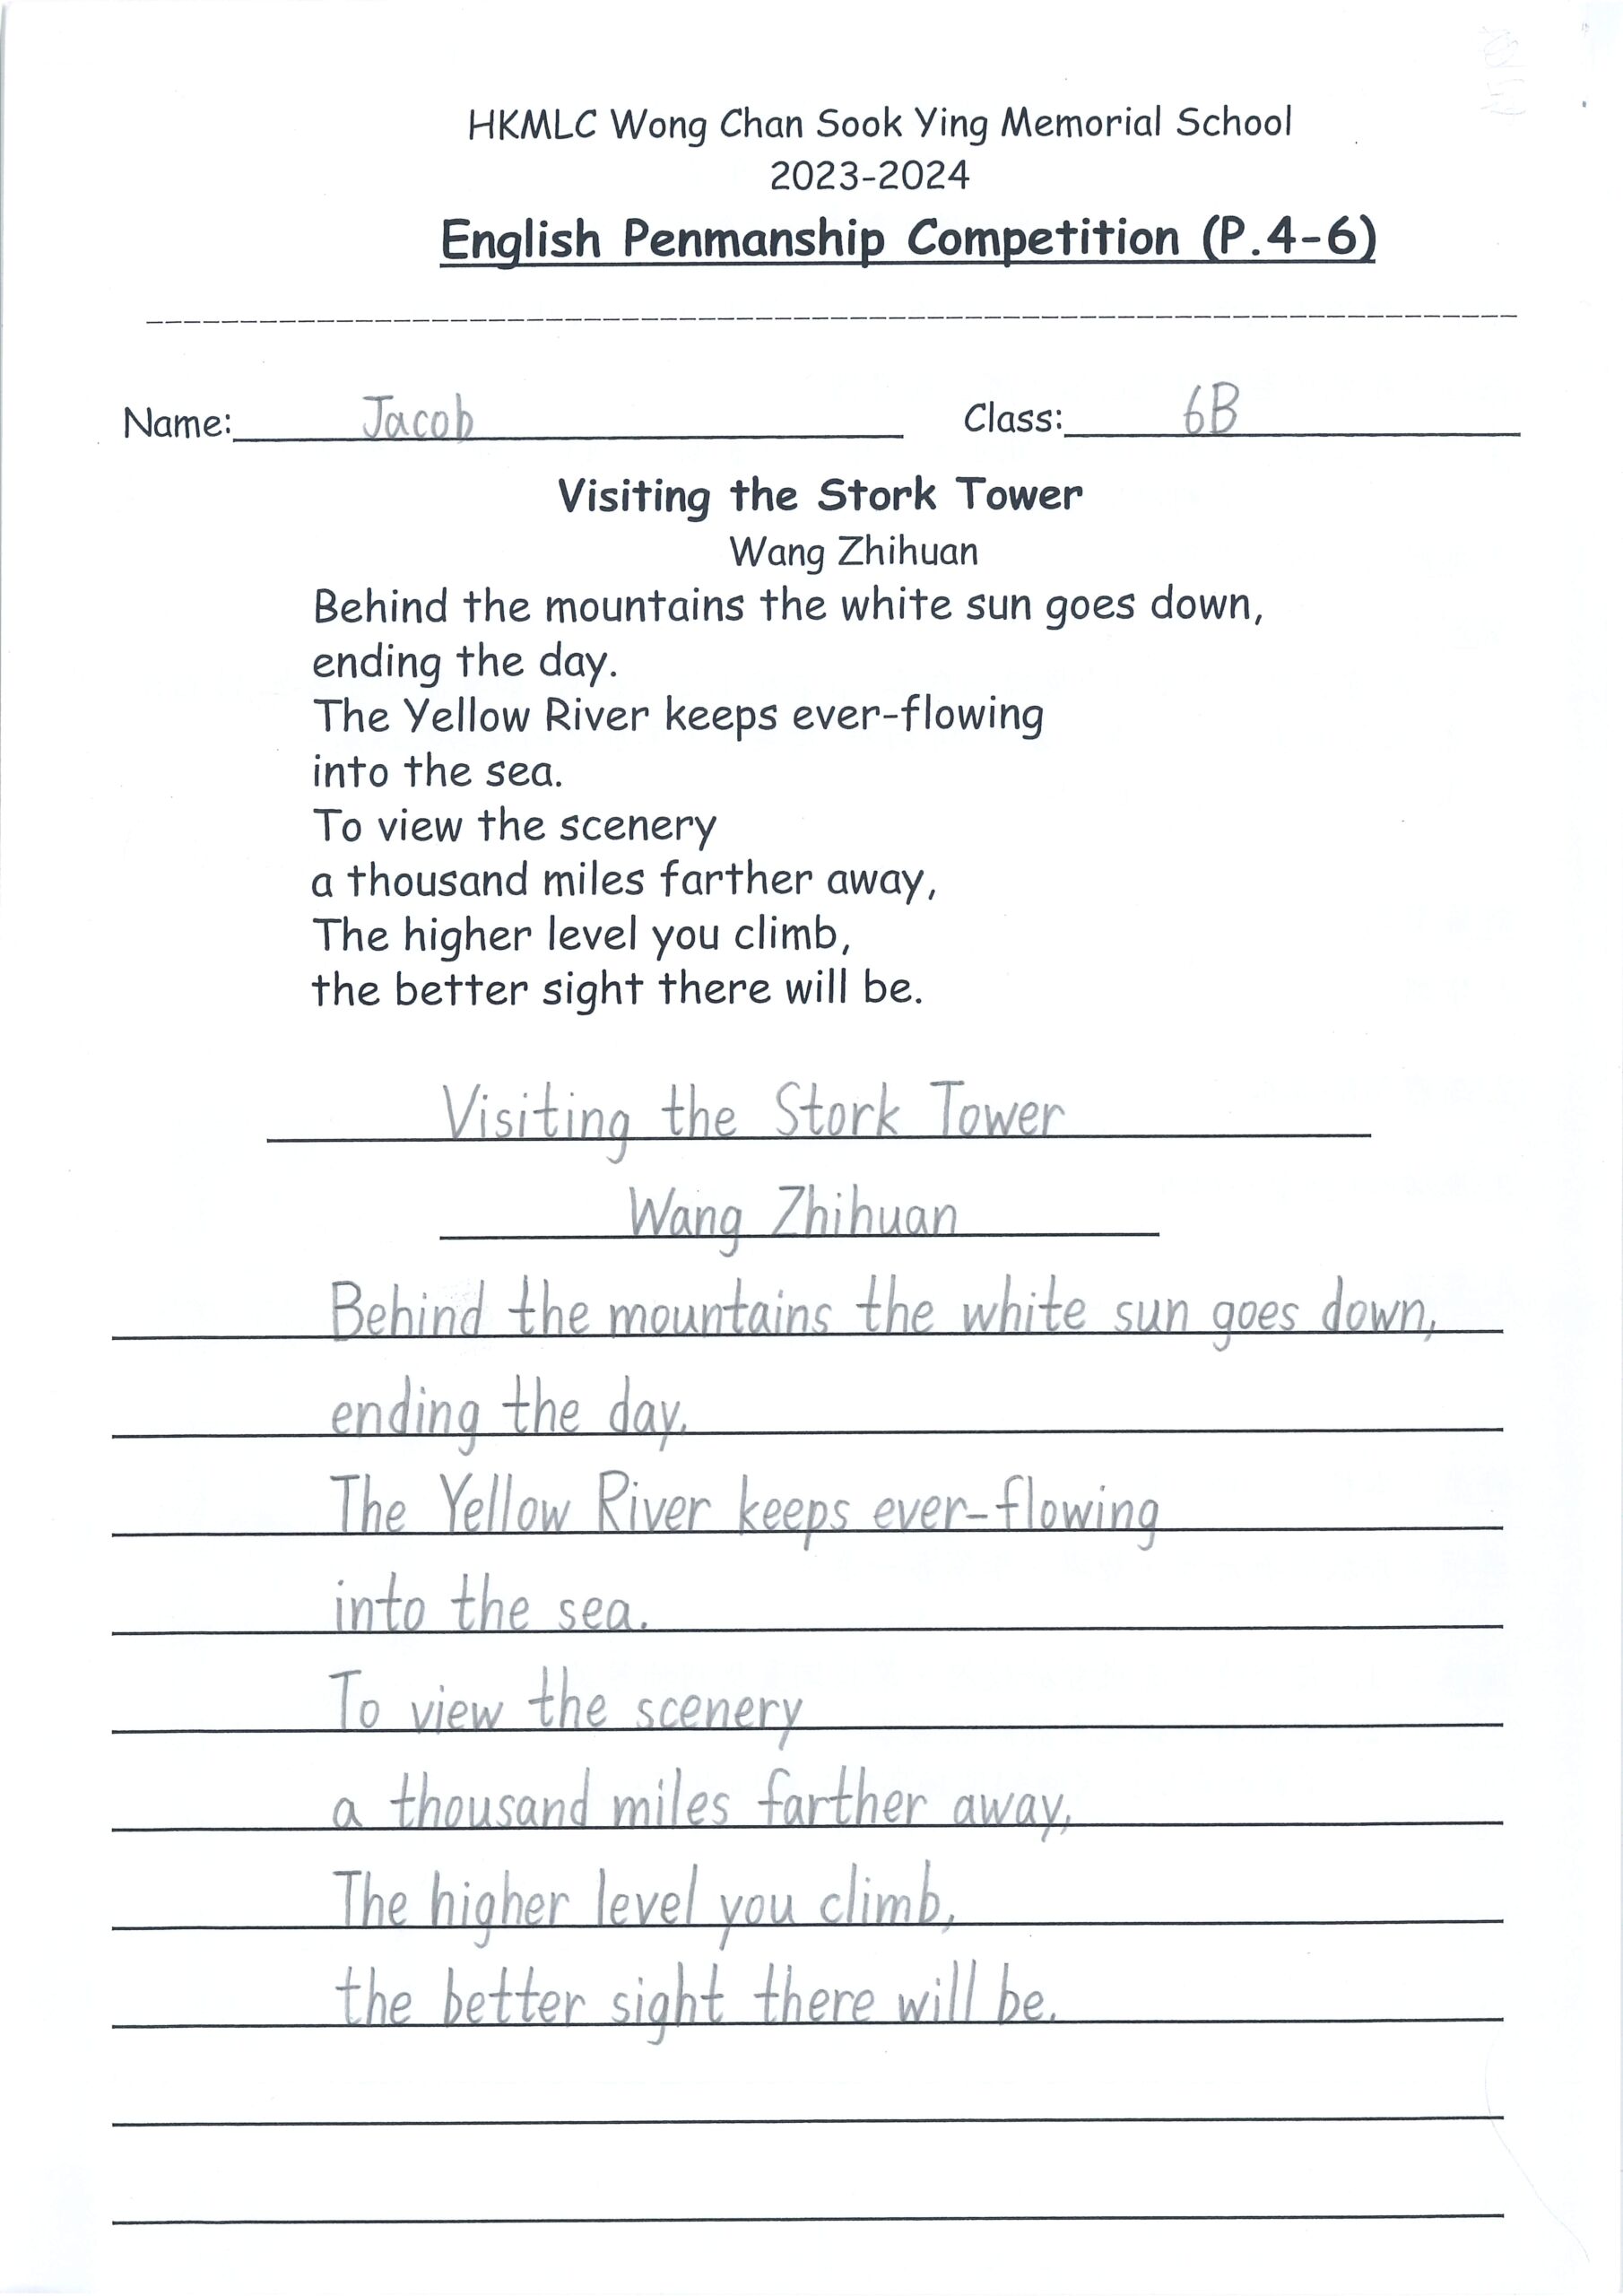 HKMLC Wong Chan Sook Ying Memorial School
2023-2024
English Penmanship Competition (P.4-6)
Name: Jacob Class: 6B
Visiting the Stork Tower
Wang Zhihuan
Behind the mountains the white sun goes down,
ending the day.
The Yellow River keeps ever-flowing
into the sea.
To view the scenery
a thousand miles farther away,
The higher level you climb,
the better sight there will be.
Visiting the Stork Tower
Wang Zhihuan
Behind the mountains the white sun goes down,
ending the day.
The Yellow River keeps ever-flowing
into the sea.
To view the scenery
a thousand miles farther away,
The higher level you climb,
the better sight there will be.